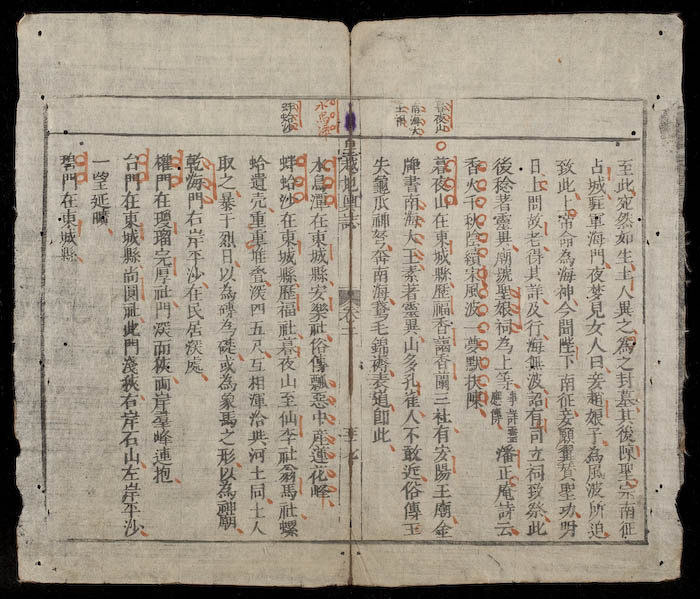 暮夜山
南海大王
水鳥潭
蜯蛤沙
至此宛然如生土人異之為之封墓其後陳聖宗南征
占城駐軍海門夜夢見女人曰妾趙娘子為風波所迫
致此上帝命為海神今聞陛下南征妾願翼贊聖功明
日上問故老得其詳及行海無波詔有司立祠致祭此
後稔著靈異廟號聖娘祠為上等事詳靈應傳潘正庵詩云
香火千秋陰宋風波一夢默扶陳
暮夜山在東城縣歷福香謁香蘭三社有安陽王廟金
牌書南海大王素著靈異山多孔雀人不敢近俗傳玉
失龜爪神弩奔南海鵞毛錦褥表道即此
皇越地輿誌 卷二
水鳥潭在東城縣安樂社俗傳瓢惡中産蓮花峰
蜯蛤沙在東城縣歷福社暮夜山至仙李社翁馬社螺
蛤遺完重重堆叠深四五尺互相渾洽與河土同土人
取之暴于烈日以為磚為礎或為象馬之形以為祠廟
乾海門右岸平沙在民居深處
權門在瓊瑠完厚社門深而狹兩岸羣峰連抱
台門在東城縣尚園社此門淺狹右岸石山左岸平沙
一望延晴
碧門在東城縣